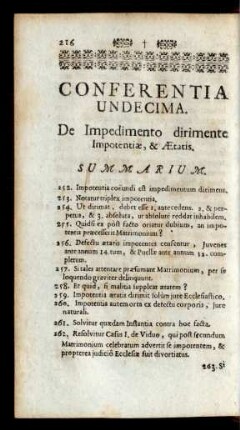 216
CONFERENTIA
UNDECIMA.
De Impedimento dirimente
Impotentiæ, & Ætatis.
SUMMARIUM.
212. Impotentia coëundi est impedimentum dirimens.
213. Notatur triplex impotentia.
214. Ut dirimat, debet esse 1. antecedens. 2. & per-
petua, & 3. absoluta, ut absolutè reddat inhabilem.
215. Quid si ex post facto oriatur dubium, an impo-
tentia præcesserit Matrimonium?
216. Defectu ætatis impotentes censentur, Juvenes
ante annum 14. tum, & Puellæ ante annum 12. com-
pletum.
257. Si tales attentare præsumant Matrimonium, per se
loquendo graviter delinquunt.
258. Et quid, si malitia suppleat ætatem?
259. Impotentia ætatis dirimit solùm jure Ecclesiastico.
260. Impotentia autem orta ex defectu corporis, jure
naturali.
261. Solvitur quædam Instantia contra hoc facta.
262. Resolvitur Casus I. de Viduo, qui post secundum
Matrimonium celebratum advertit se impotentem, &
propterea judiciô Ecclesiæ fuit divortiatus.
263. Si